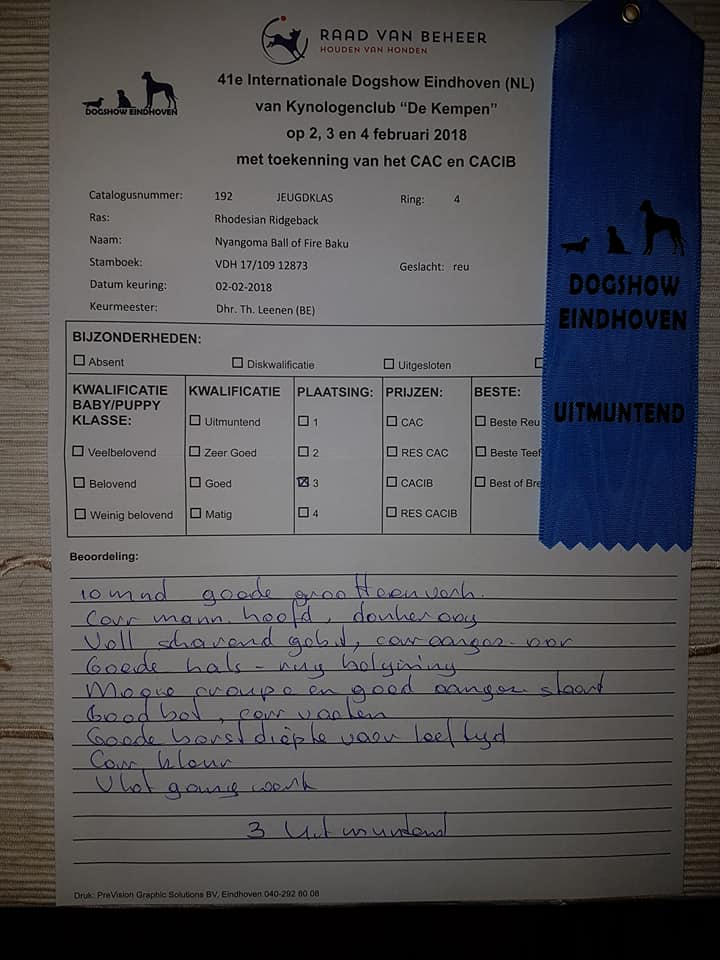 RAAD VAN BEHEER
HOUDEN VAN HONDEN
DOGSHOW EINDHOVEN
41e Internationale Dogshow Eindhoven (NL)
van Kynologenclub “De Kempen”
op 2, 3 en 4 februari 2018
met toekenning van het CAC en CACIB
Catalogusnummer: 192 JEUGDKLAS Ring: 4
Ras: Rhodesian Ridgeback
Naam: Nyangoma Ball of Fire Baku
Stamboek: VDH 17/109 12873 Geslacht: reu
Datum keuring: 02-02-2018
Keurmeester: Dhr. Th. Leenen (BE)
DOGSHOW
EINDHOVEN
UITMUNTEND
BIJZONDERHEDEN:
Absent Diskwalificatie Uitgesloten
KWALIFICATIE BABY/PUPPY KLASSE: KWALIFICATIE PLAATSING: PRIJZEN: BESTE:
Uitmuntend 1 CAC Beste Reu
Veelbelovend Zeer Goed 2 RES CAC Beste Teef
Belovend Goed 3 CACIB Best of Bre
Weinig belovend Matig 4 RES CACIB
Beoordeling:
10 mnd goede grootte en verh.
Corr mann. hoofd, donker oog
Voll scharend gebit, corr aangez. oor
Goede hals - rug belijning
Mooie croupe en goed aangez. staart
Goed bot, corr voeten
Goede borstdiepte voor leeftijd
Corr kleur
Vlot gangwerk
3 Uitmuntend
Druk: PreVision Graphic Solutions BV, Eindhoven 040-292 60 08